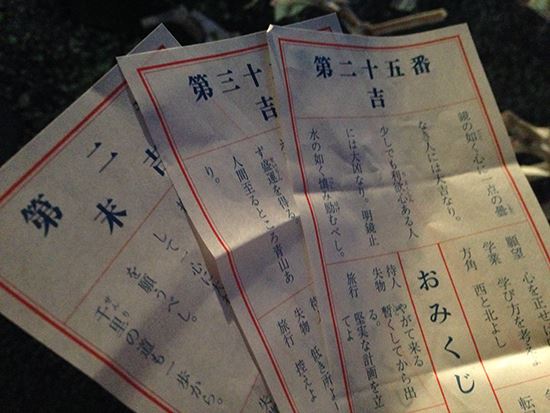 第二十五番
吉
鏡の如く心に一点の曇
なき人には大吉なり。
少しでも利欲心ある人
には大凶なり。明鏡止
水の如く慎み励むべし。
おみくじ
願望 心を正せ
学業 学び方を考えよ
方角 西と北よし
転
待人 やがて来る
失物 暫くしてから出
る。
旅行 堅実な計画を立
てよ
第三十
吉
ず盛運を得る
人間至るところ青山あ
り。
失物 低き所より
旅行 控えよ
第二
末吉
して一心に
を願うべし。
千里の道も一歩から。